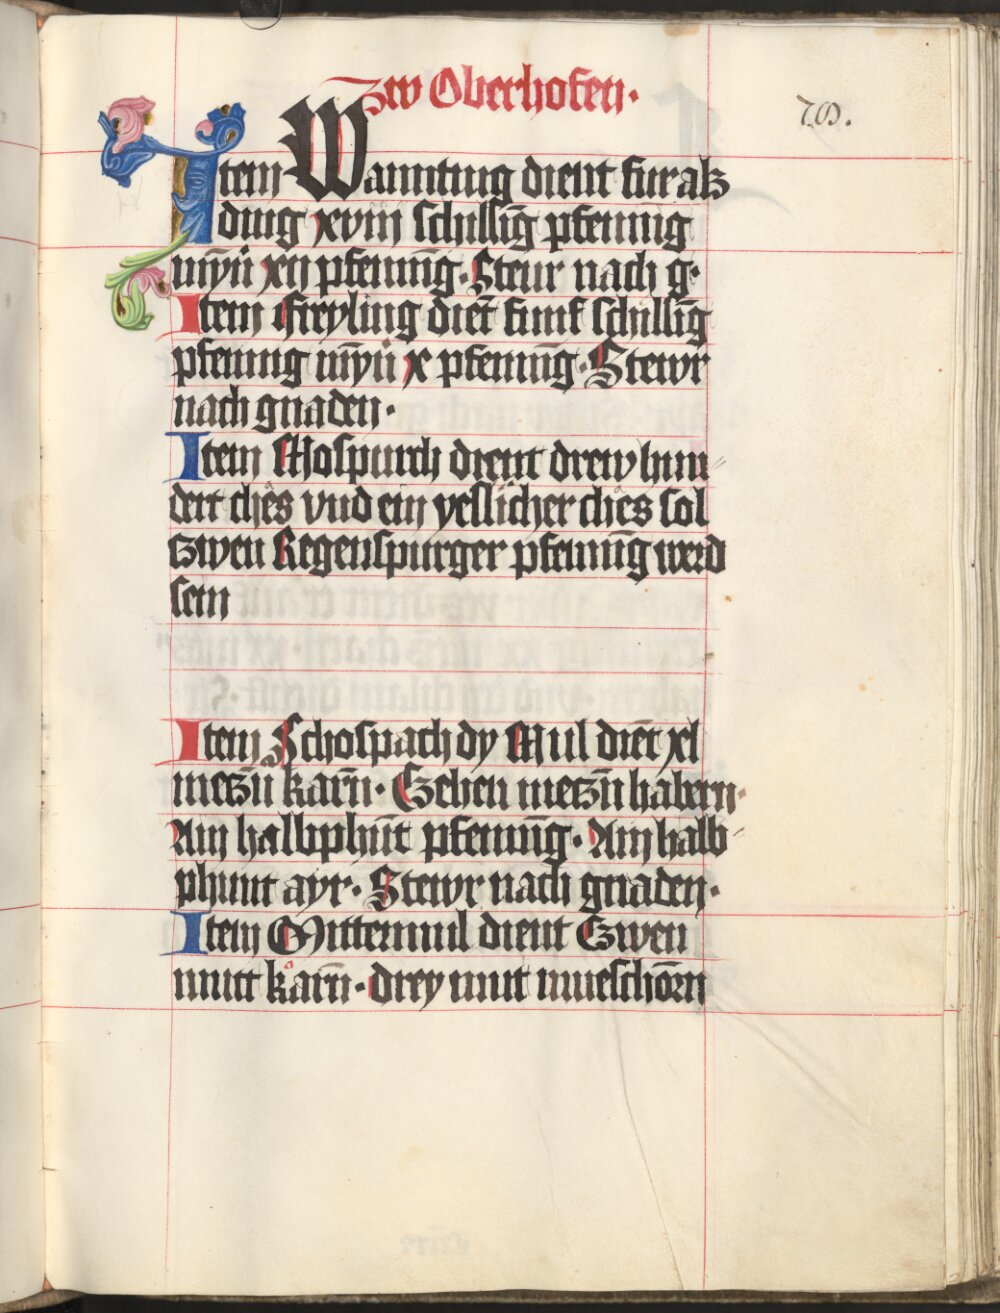 Zw Oberhofen.
Item Wanntting dient fur als
ding xviii schilling pfenning
mynn̄ xii pfenning. Steur nach g.
Item Freyling dient̄ funf schilling
pfening mynn̄ x pfenning. Stewr
nach gnaden.
Item Mospurch dient drew hun
dert ches vnd ein yeslicher ches sol
zwen Regenspurger pfenning werd
sein
Item Schospach dy Mul dient̄ xl
meczn̄ karn̄. Czehen meczn̄ habern.
Ain halbphūt pfennīg. Ain halb
phunt ayr. Stewr nach gnaden.
Item Mittermul dient Czwen
mutt karn̄. drey mut mueschōrn